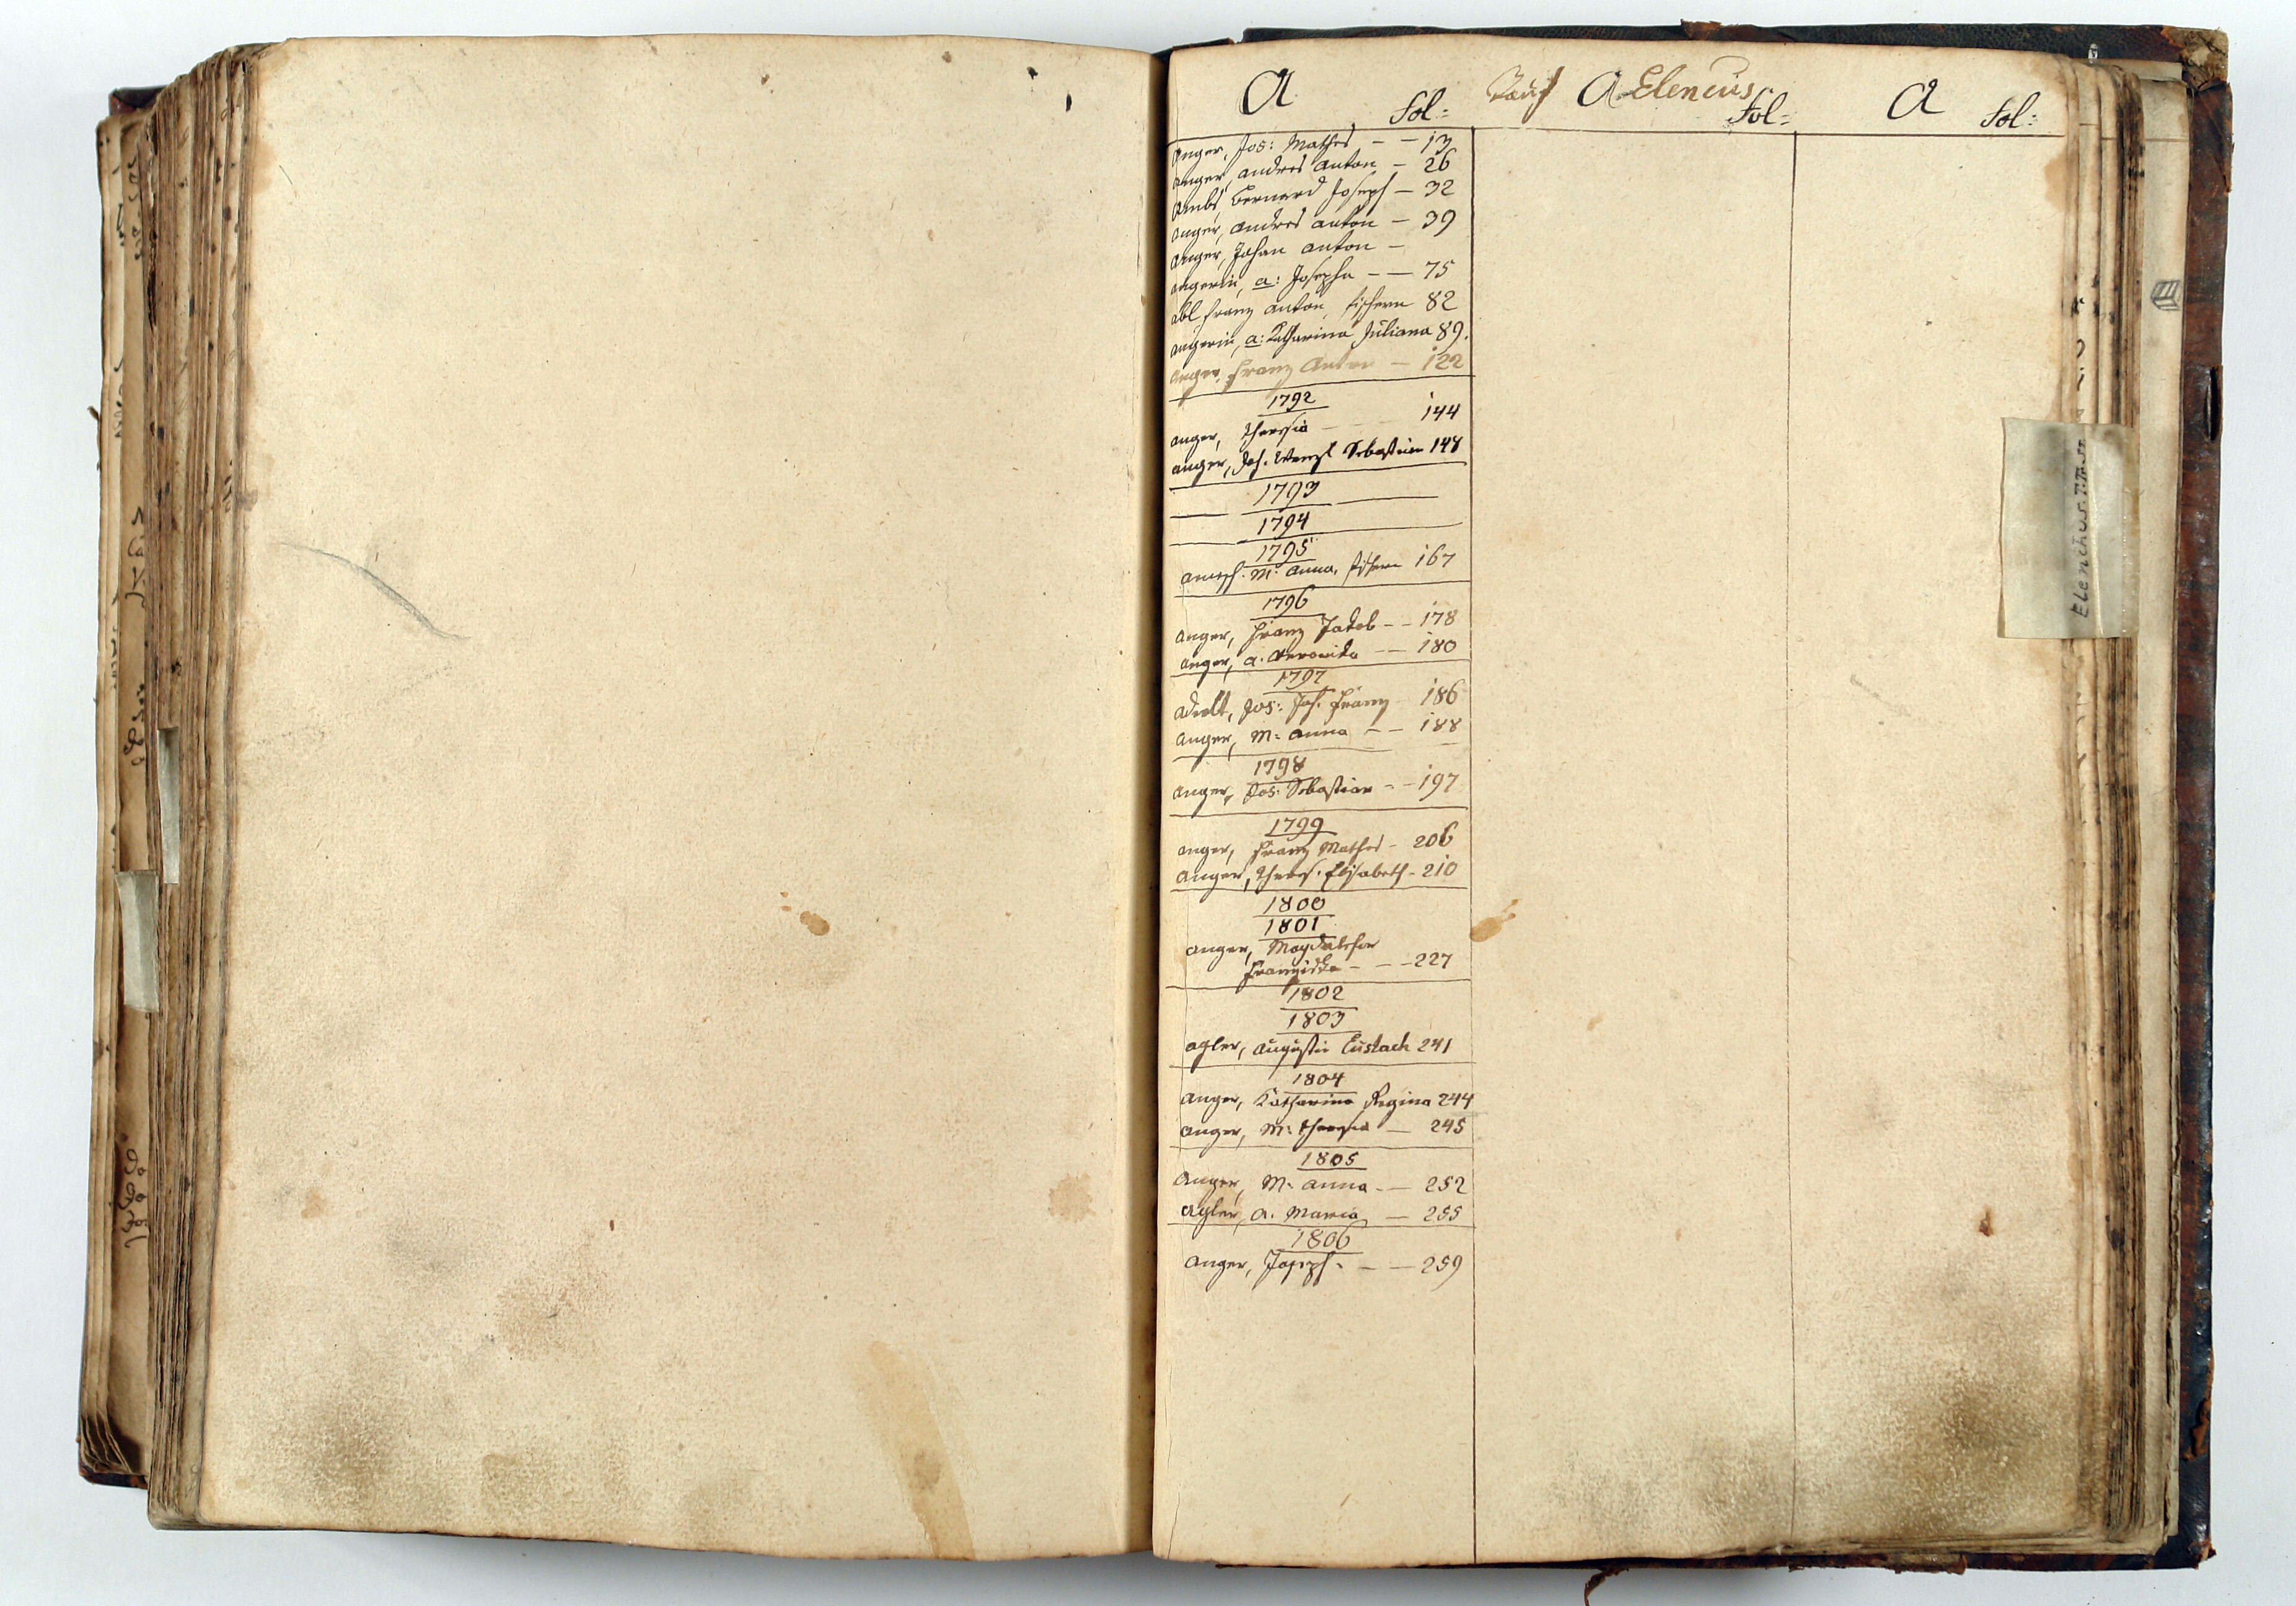 A Fol:
Tauf A Elencus Fol:
A Fol:
Anger, Jos: Mathes — — 13
Anger, Andres Anton — 26
Ambs Bernard Joseph — 32
Anger, Andres Anton — 39
Anger, Johan Anton —
Angerin, A: Josepha — — 75
Abl Franz Anton, 82
Angerin, A: Katharina Juliana 89.
Anger, Franz Anton — 122
1792
Anger, Theresia — 144
Anger, Joh. Wenzl Sebastian 148
1793
1794
1795
M: Anna, 167
1796
Anger, Franz Jakob — — 178
Anger, A. Veronika — — 180
1797
Adelt, Jos: Joh. Franz 186
Anger, M: Anna — — 188
1798
Anger, Jos: Sebastian — — 197
1799
Anger, Franz Mathes — 206
Anger, Theres. Elisabeth — 210
1800
1801
Anger,
Franziska — — — 227
1802
1803
Agler, Augustin Eustach 241
1804
Anger, Katharina Regina 244
Anger, M: Theresia — 245
1805
Anger, M: Anna — — 252
Agler, A. Maria — 255
1806
Anger, Joseph — — 259
Elenchus